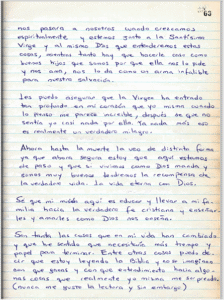 63
nos pasara a nosotros cuando crezcamos
espiritualmente y estemos junto a la Santísima
Virgen y al mismo Dios que entenderemos estas
cosas, mientras tanto hay que hacerle caso como
buenos hijos que somos por que ella nos lo pide
y nos ama, nos lo da como un arma infalible
para nuestra salvación.
Les puedo asegurar que la Virgen ha entrado
tan profundo en mi corazón que yo misma cuando
lo pienso me parece increible, después de que no
sentía ya casi nada por ella. Ya nada más eso
es realmente un verdadero milagro.
Ahora hasta la muerte la veo de distinta forma
ya que ahora segura estoy que aquí estamos
de paso y que si vivimos como Dios manda y
somos muy buenos tendremos la recompensa de
la verdadera vida. La vida eterna con Dios.
Se que mi misión aquí es educar y llevar a mi fa-
milia hacia la verdadera fe cristiana y enseñar-
les y amarles como Dios nos enseña.
Son tantas las cosas que en mi vida han cambiado
y que he sentido que necesitaría más tiempo y
papel para terminar. Entre otras cosas puedo de-
cir que estoy leyendo la Biblia y no se imaginan
con que ganas y con que entendimiento hacia algu-
nas cosas que realmente y misma me sorprendo
(nunca me gusto la lectura y sin embargo)